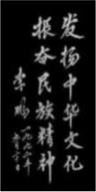 发扬中华文化
振奋民族精神
李鹏
一九九八年